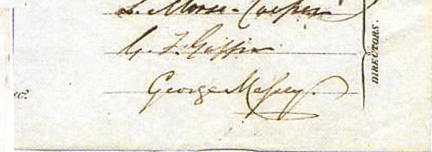 L. Morse-Cooper
G. F. Goffin
George Massey.
DIRECTORS.